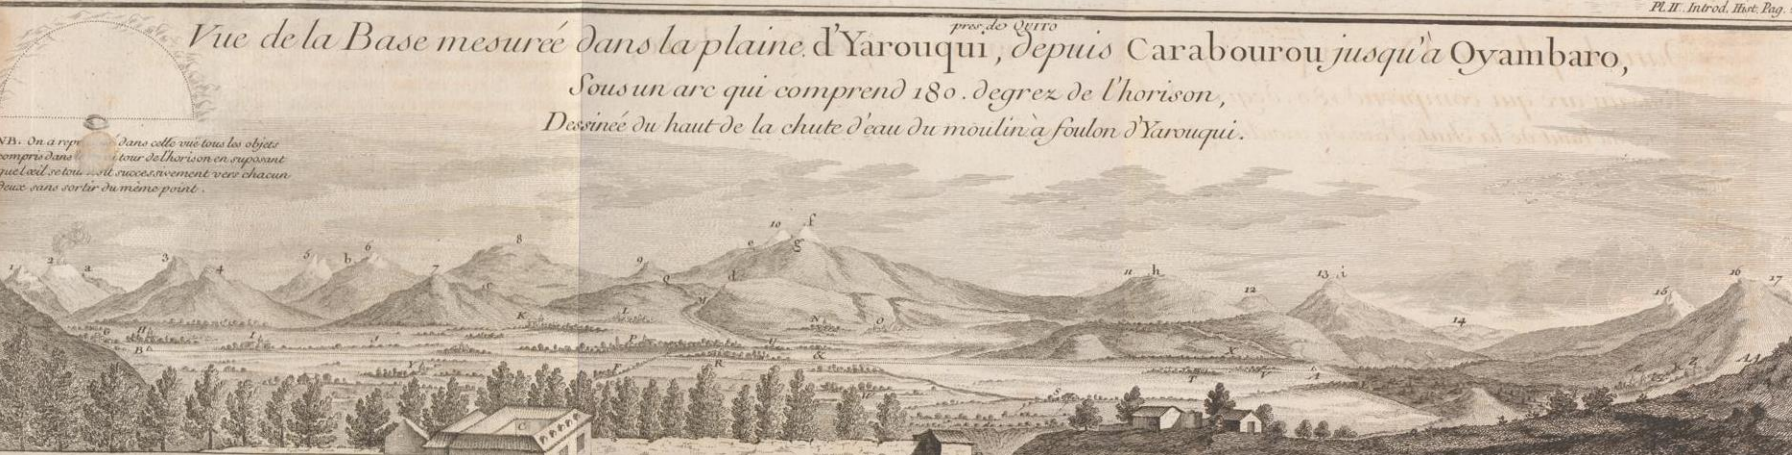 Pl. II. Introd. Hist. Pag.
près de QUITO
Vue de la Base mesureé dans la plaine d'Yarouqui, depuis Carabourou jusqu'à Oyambaro,
Sous un arc qui comprend 180. degrez de l'horison,
Dessineé du haut de la chute d'eau du moulin à foulon d'Yarouqui.
NB. On a dans cette vuë tous les objets
compris dans tour de l'horison en suposant
que l'œil se successivement vers chacun
deux sans sortir du même point.
10 f
8 e g
6
3 5 b
1 2 a 4 7 9 Q d 11 h 13 i 16 17
12 15
14
H I K L M N O
B P & X Z AA
Y R T V A
S
C